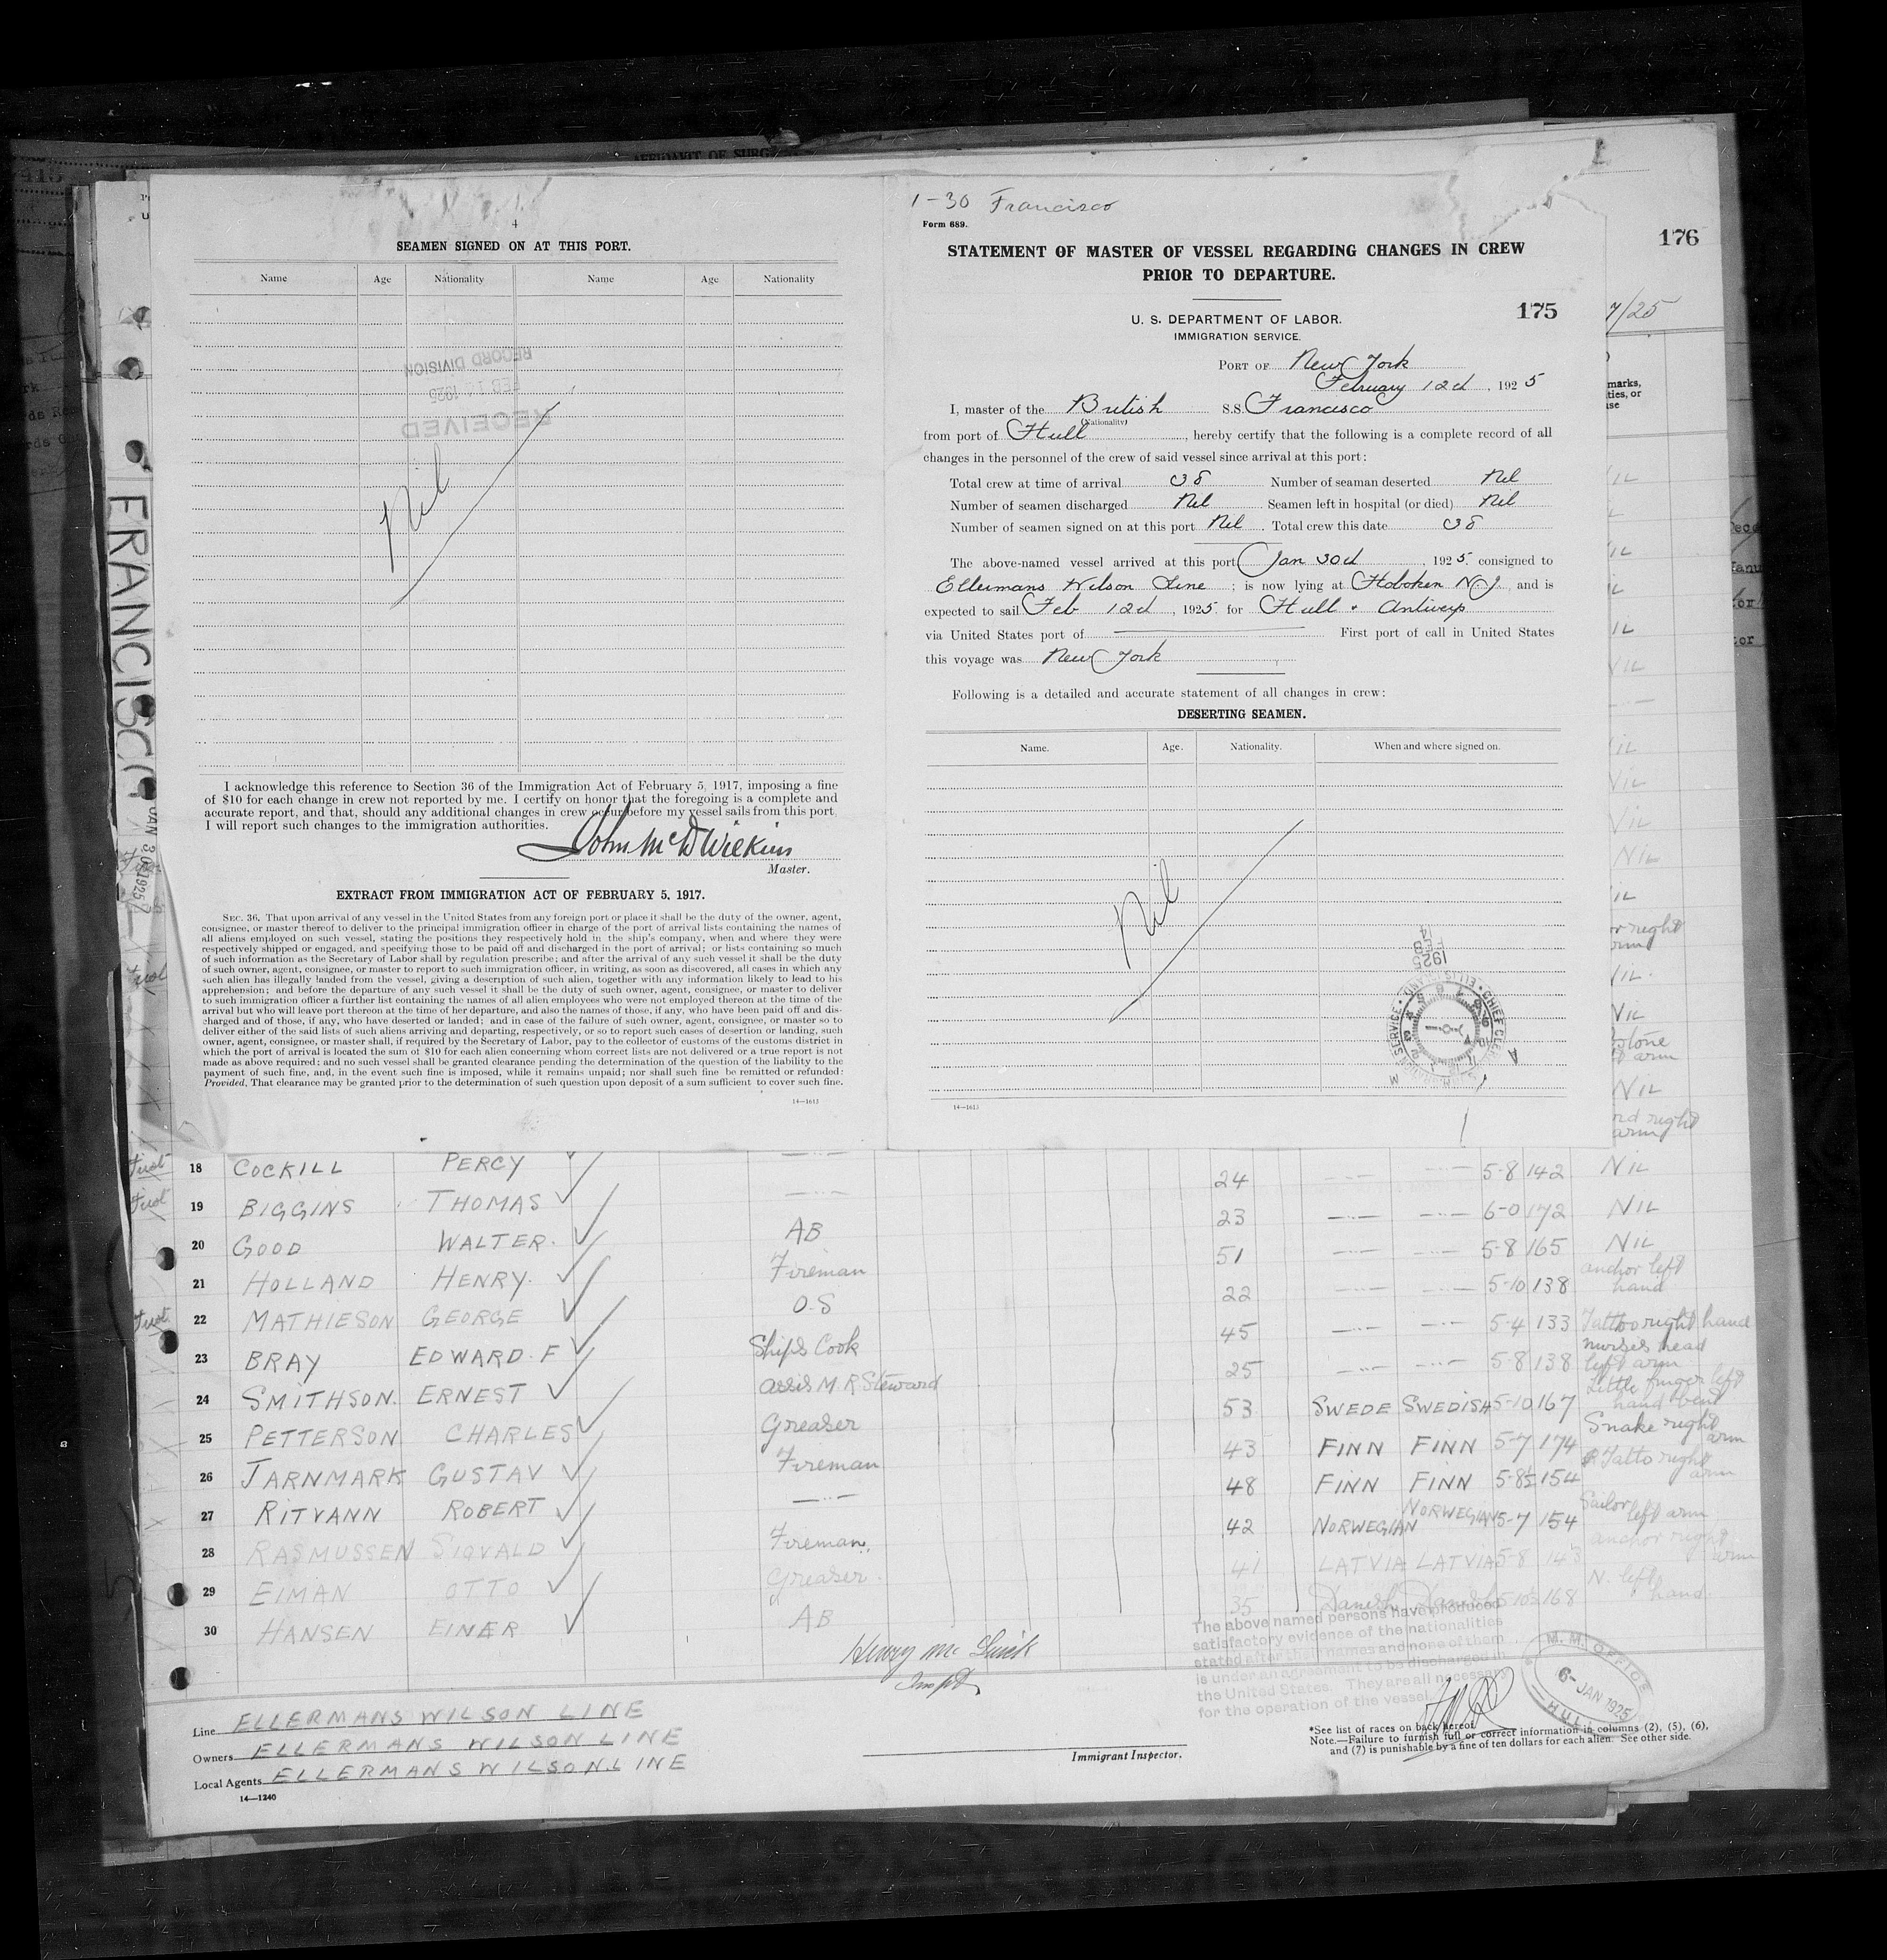 4
SEAMEN SIGNED ON AT THIS PORT.
Name Age Nationality Name Age Nationality
RECEIVED
FEB 14 1925
RECORD DIVISION
Nil
I acknowledge this reference to Section 36 of the Immigration Act of February 5, 1917, imposing a fine
of $10 for each change in crew not reported by me. I certify on honor that the foregoing is a complete and
accurate report, and that, should any additional changes in crew occur before my vessel sails from this port,
I will report such changes to the immigration authorities.
John McD Wilkins
Master.
EXTRACT FROM IMMIGRATION ACT OF FEBRUARY 5, 1917.
SEC. 36. That upon arrival of any vessel in the United States from any foreign port or place it shall be the duty of the owner, agent,
consignee, or master thereof to deliver to the principal immigration officer in charge of the port of arrival lists containing the names of
all aliens employed on such vessel, stating the positions they respectively hold in the ship's company, when and where they were
respectively shipped or engaged, and specifying those to be paid off and discharged in the port of arrival; or lists containing so much
of such information as the Secretary of Labor shall by regulation prescribe; and after the arrival of any such vessel it shall be the duty
of such owner, agent, consignee, or master to report to such immigration officer, in writing, as soon as discovered, all cases in which any
such alien has illegally landed from the vessel, giving a description of such alien, together with any information likely to lead to his
apprehension; and before the departure of any such vessel it shall be the duty of such owner, agent, consignee, or master to deliver
to such immigration officer a further list containing the names of all alien employees who were not employed thereon at the time of the
arrival but who will leave port thereon at the time of her departure, and also the names of those, if any, who have been paid off and dis-
charged and of those, if any, who have deserted or landed; and in case of the failure of such owner, agent, consignee, or master so to
deliver either of the said lists of such aliens arriving and departing, respectively, or so to report such cases of desertion or landing, such
owner, agent, consignee, or master shall, if required by the Secretary of Labor, pay to the collector of customs of the customs district in
which the port of arrival is located the sum of $10 for each alien concerning whom correct lists are not delivered or a true report is not
made as above required; and no such vessel shall be granted clearance pending the determination of the question of the liability to the
payment of such fine, and, in the event such fine is imposed, while it remains unpaid; nor shall such fine be remitted or refunded:
Provided, That clearance may be granted prior to the determination of such question upon deposit of a sum sufficient to cover such fine.
14—1613
1-30 Francisco
Form 689.
STATEMENT OF MASTER OF VESSEL REGARDING CHANGES IN CREW
PRIOR TO DEPARTURE.
175
176
U. S. DEPARTMENT OF LABOR.
IMMIGRATION SERVICE.
PORT OF New York
February 12d, 1925
I, master of the British S.S. Francisco
(Nationality)
from port of Hull, hereby certify that the following is a complete record of all
changes in the personnel of the crew of said vessel since arrival at this port:
Total crew at time of arrival 38 Number of seaman deserted Nil
Number of seamen discharged Nil Seamen left in hospital (or died) Nil
Number of seamen signed on at this port Nil. Total crew this date 38
The above-named vessel arrived at this port Jan 30d, 1925. consigned to
Ellermans Wilson Line; is now lying at Hoboken N.J. and is
expected to sail Feb 12d, 1925. for Hull & Antwerp
via United States port of First port of call in United States
this voyage was New York
Following is a detailed and accurate statement of all changes in crew:
DESERTING SEAMEN.
Name. Age. Nationality. When and where signed on.
Nil
1925
FEB
14
14—1613
FRANCISCO
JAN 30 1925
18 COCKILL PERCY 24 5-8 142 NIL
19 BIGGINS THOMAS 23 6-0 172 NIL
20 GOOD WALTER. AB 51 5-8 165 NIL
21 HOLLAND HENRY. Fireman 22 5-10 138 anchor left hand
22 MATHIESON GEORGE O.S 45 5-4 133 Tattoo right hand
23 BRAY EDWARD. F Ships Cook 25 5-8 138 nurses head left arm
24 SMITHSON. ERNEST assis M. R Steward 53 SWEDE SWEDISH 5-10 167 Little finger left hand bent
25 PETTERSON CHARLES Greaser 43 FINN FINN 5-7 174 Snake right arm
26 JARNMARK GUSTAV Fireman 48 FINN FINN 5-8½ 154 Tatto right arm
27 RITVANN ROBERT 42 NORWEGIAN NORWEGIAN 5-7 154 Sailor left arm
28 RASMUSSEN SIGVALD Fireman. 41 LATVIA LATVIA 5-8 143 anchor right arm
29 EIMAN OTTO Greaser. 35 Danish Danish 5-10½ 168 N. left hand.
30 HANSEN EINER AB
The above named persons have produced
satisfactory evidence of the nationalities
stated after their names and none of them
is under an agreement to be discharged in
the United States. They are all necessary
for the operation of the vessel.
M. M. OFFICE
6- JAN 1925
HULL
Line ELLERMANS WILSON LINE
Owners ELLERMANS WILSON LINE
Local Agents ELLERMANS WILSON LINE
14—1240
Immigrant Inspector.
*See list of races on back hereof.
Note.—Failure to furnish full or correct information in columns (2), (5), (6),
and (7) is punishable by a fine of ten dollars for each alien. See other side.